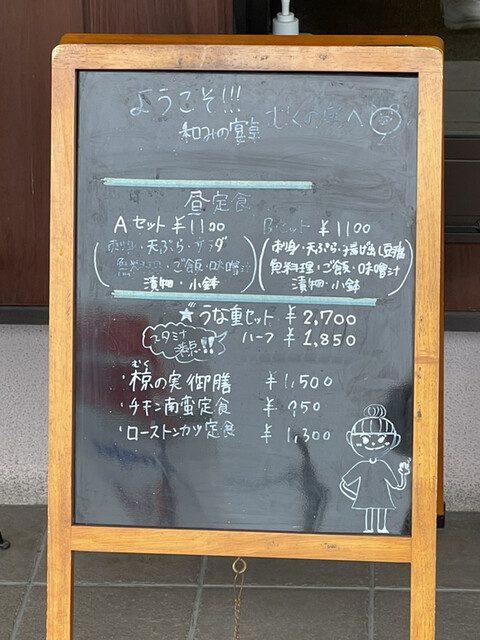 ようこそ!!!
和みの宴卓 むくの実へ
昼定食
Aセット ¥1100
(刺身・天ぷら・サラダ
魚料理・ご飯・味噌汁
漬物・小鉢)
Bセット ¥1100
(刺身・天ぷら・揚げ出し豆腐
魚料理・ご飯・味噌汁
漬物・小鉢)
★うな重セット ¥2,700
スタミナ満点!!
ハーフ ¥1,850
・椋の実御膳 ¥1,500
むく
・チキン南蛮定食 ¥950
・ローストンカツ定食 ¥1,300